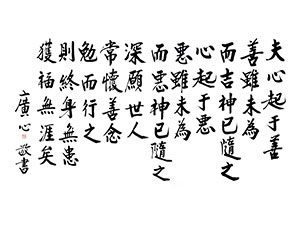 夫心起于善
善雖未為
而吉神已隨之
心起于惡
惡雖未為
而惡神已隨之
深願世人
常懷善念
勉而行之
則終身無患
獲福無涯矣
廣心敬書